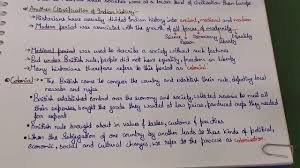 Another Classification of Indian history:
→ Historians have usually divided Indian history into ancient, medieval and modern
→ Modern period was associated with the growth of all forces of modernity
Science Reason Democracy
Liberty Equality
→ Medieval period was used to describe a society without such features
→ But under British rule, people did not have equality, freedom or liberty
→ Many historians therefore refer to this period as colonial
Colonial
→ The British came to conquer the country and establish their rule, defeating local nawabs and rajas
→ British established control over the economy and society, collected revenue to meet all their expenses, bought the goods they wanted at low prices, produced crops they needed for export
→ British rule brought about in values & tastes, customs & practices
→ When the subjugation of one country by another leads to these kinds of political, economic, social and cultural changes, we refer to the process as colonisation